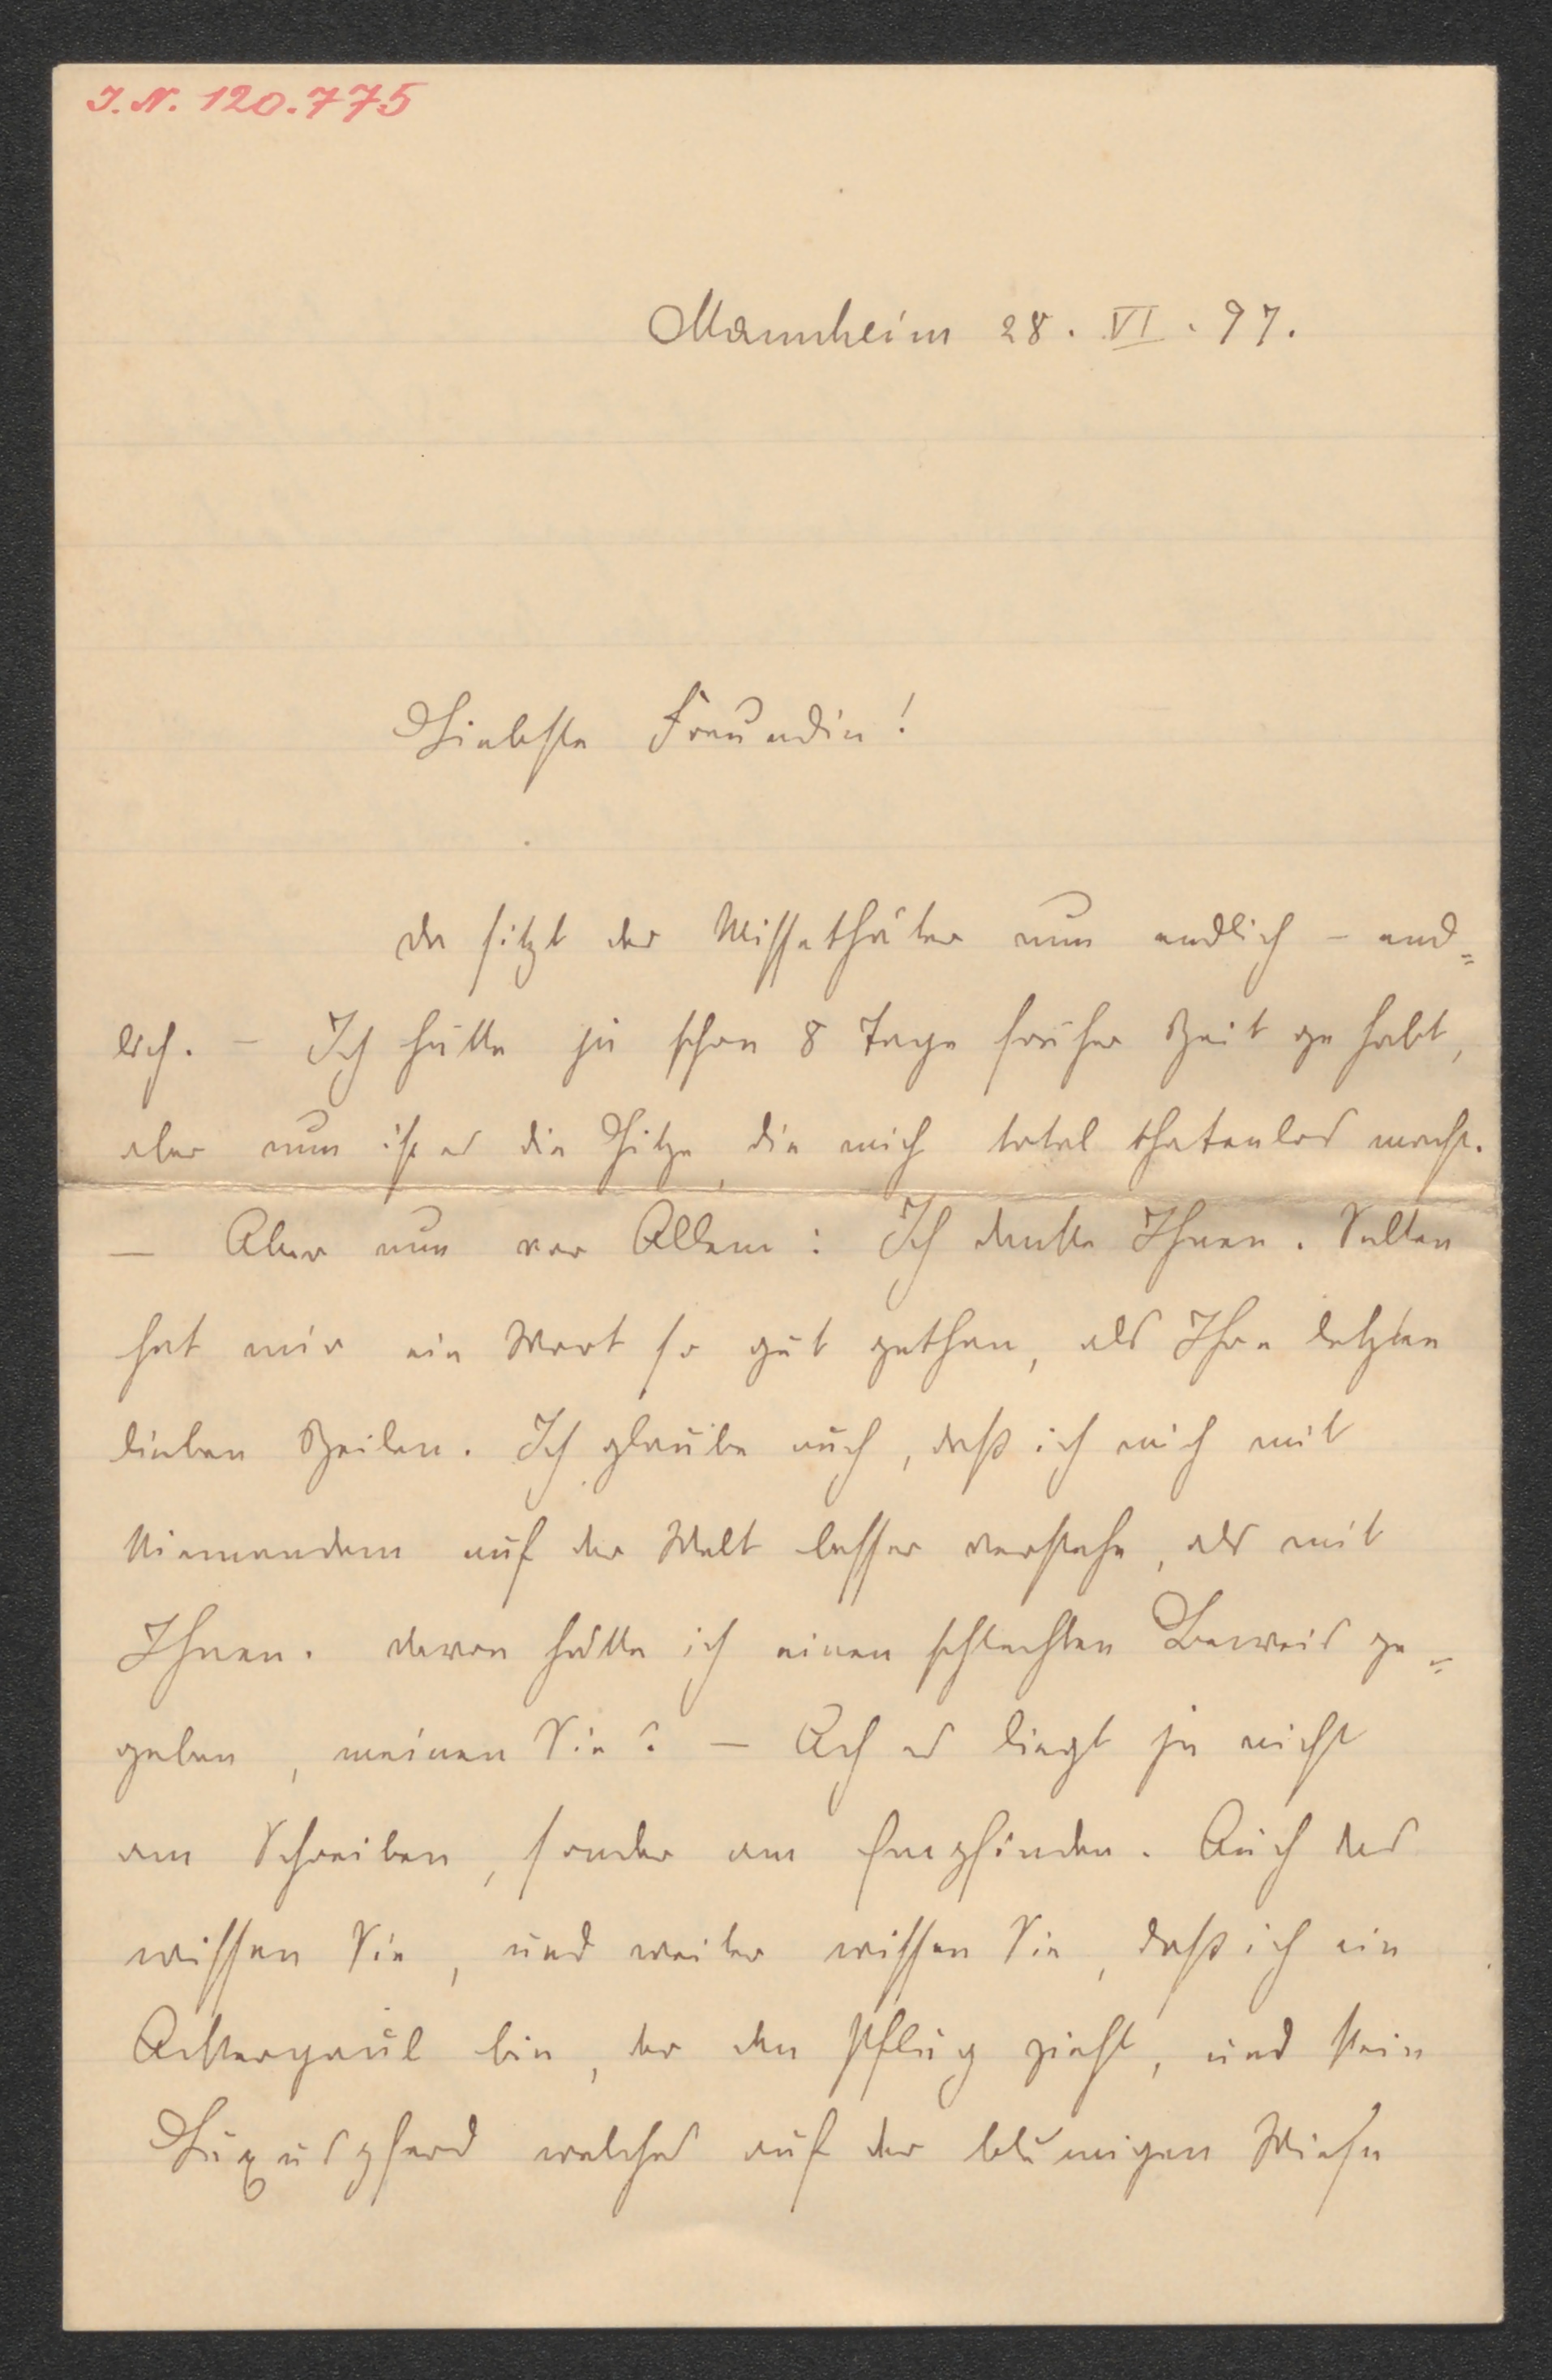 I. N. 120.775
Mannheim 28. VI. 97.
Liebste Freundin!
da sitzt der Missethäter nun endlich – end=
lich. – Ich hätte ja schon 8 Tage früher Zeit gehabt,
aber nun ist es die Hitze, die mich total thatenlos macht.
– Aber nun vor Allem: Ich danke Ihnen. Selten
hat mir ein Wort so gut gethan, als Ihre letzten
lieben Zeilen. Ich glaube auch, daß ich mich mit
Niemandem auf der Welt besser verstehe, als mit
Ihnen. davon hätte ich einen schlechten Beweis ge=
geben, meinen Sie? – Ach es liegt ja nicht
am Schreiben, sonder am Empfinden. Auch das
wissen Sie, und weiter wissen Sie, daß ich ein
Ackergaul bin, der den Pflug zieht, und kein
Luxuspferd welches auf der blumigen Wiese